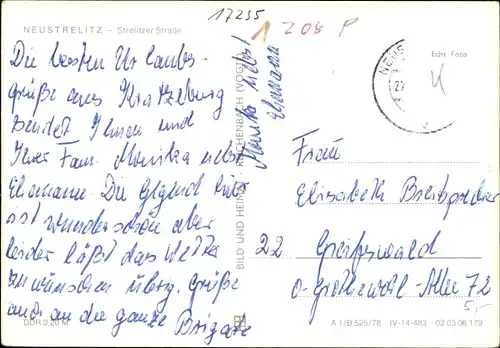 NEUSTRELITZ – Strelitzer Straße
17235
1 208 P
Die besten Urlaubs-
grüße aus Kratzeburg
sendet Ihnen und
Ihrer Fam. Monika nebst
Ehemann. Die Gegend hier
ist wunderschön aber
leider läßt das Wetter
zu wünschen übrig. Grüße
auch an die ganze Brigade
Monika nebst
Ehemann
BILD UND HEIMAT REICHENBACH (VOGTL)
Echt Foto
NEUS
Frau
Elisabeth
22 Greifswald
O-Grotewohl-Allee 72
5,-
DDR 0,20 M
A 1/B 525/78 IV-14-483 02 03 06 179